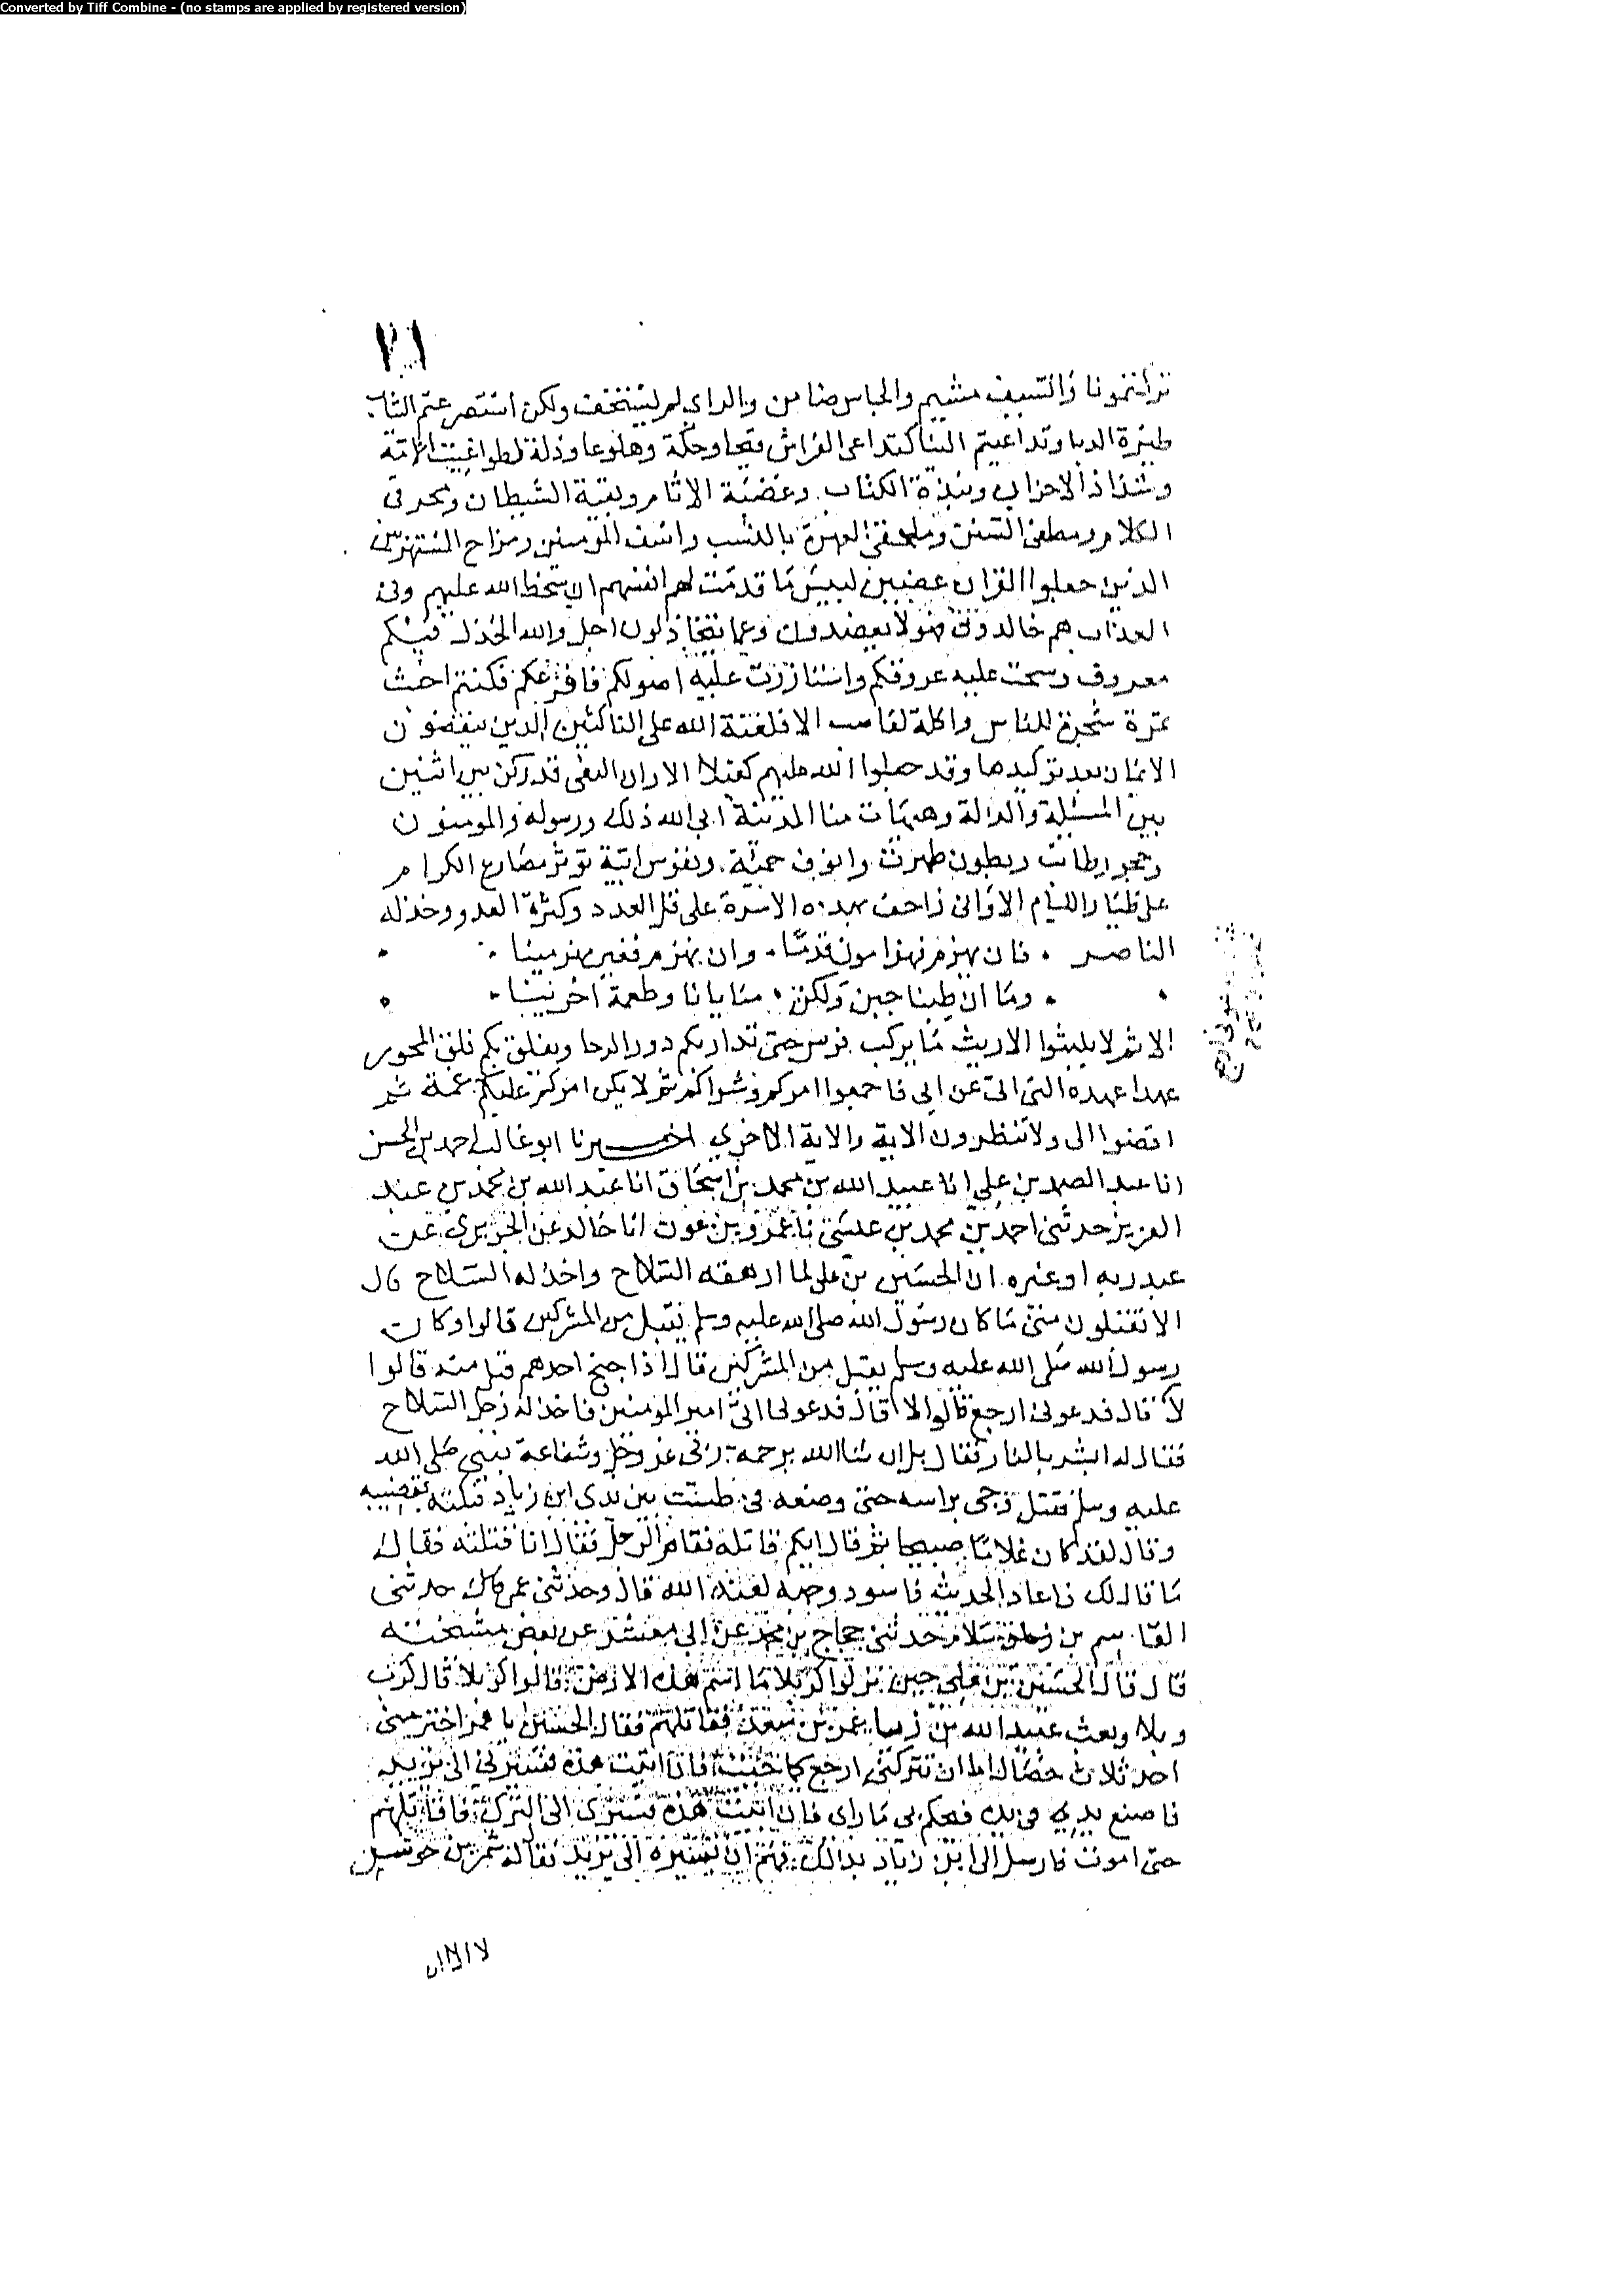 Converted by Tiff Combine - (no stamps are applied by registered version)
٢١
والسيف مشيم والجاش ضامن والراي لم يستخف ولكن استصرعتم الينا
طيرة الدبا وتداعيتم الينا كتداعي الفراش قيحا وحكة وهلوعا وذلة لطواغيت الامة
وشذاذ الاحزاب ونبذة الكتاب وعضبة الاثام وبقية الشيطان ومحرفي
الكلام ومطفي السنن وملحقي العهرة بالنسب واسف المومنين ومزاح المستهزين
الذين جعلوا القران عضين لبيس ما قدمت لهم انفسهم ان سخط الله عليهم وفي
العذاب هم خالدون فهولا تعضدون وعنا تتخاذلون اجل والله الخذل فيكم
معروف وسجت عليه عروقكم واستازرت عليه اصولكم فافرعكم فكنتم اخبث
ثمرة شجرة للناس واكلة لغاصب الا فلعنة الله على الناكثين الذين ينقضون
الايمان بعد توكيدها وقد جعلوا الله عليهم كفيلا الا وان البغي قد ركن بين اثنين
بين المسئلة والدلة وهيهات منا الدنية ابى الله ذلك ورسوله والمومنون
وحجور طابت وبطون طهرت وانوف حمية ونفوس ابية توثر مصارع الكرام
على ظئار اللئام الا واني زاحف بهذه الاسرة على قل العدد وكثرة العدو وخذله
الناصر فان نهزم فهزامون قدما وان نهزم فغير مهزمينا
وما ان طبنا جبن ولكن منايانا وطعمة اخرينا
الا ثم لا يلبثوا الا ريث ما يركب فرس حتى تدار بكم دور الرحا ويفلق بكم فلق المحور
عهدا عهده النبي الى عن ابي فاجمعوا امركم وشركاكم ثم لا يكن امركم عليكم غمة ثم
اقضوا الى ولا تنظرون الاية والاية الاخرى اخبرنا ابو غالب احمد بن الحسن
انا عبد الصمد بن علي انا عبيد الله بن محمد بن اسحاق انا عبد الله بن محمد بن عبد
العزيز حدثني احمد بن محمد بن عيسى نا عمرو بن عون انا خالد عن الجريري عن
عبد ربه او غيره ان الحسين بن علي لما ارهقه السلاح واخذ له السلاح قال
الا تقبلون مني ما كان رسول الله صلى الله عليه وسلم يقبل من المشركين قالوا وكان
رسول الله صلى الله عليه وسلم يقبل من المشركين قال اذا جنح احدهم قبل منه قالوا
لا قال فدعوني ارجع قالوا لا قال فدعوني اتي امير المومنين فاخذ له رجل السلاح
فقال له ابشر بالنار فقال بل ان شا الله برحمة ربي عز وجل وشفاعة نبيي صلى الله
عليه وسلم فقتل وجي براسه حتى وضعه في طست بين يدي ابن زياد فنكته بقضيبه
وقال لقد كان غلاما صبيحا ثم قال ايكم قاتله فقام الرجل فقال انا قتلته فقال
ما قال لك فاعاد الحديث فاسود وجهه لعنه الله قال وحدثني عمي قال حدثني
القاسم بن سلام حدثني حجاج بن محمد عن ابي معشر عن بعض مشيخته
قال قال الحسين بن علي حين نزلوا كربلا ما اسم هذه الارض قالوا كربلا قال كرب
وبلا وبعث عبيد الله بن زياد عمر بن سعد فقاتلهم فقال الحسين يا عمر اختر مني
احد ثلاث خصال اما ان تتركني ارجع كما جئت فان ابيت هذه فسيرني الى يزيد
فاضع يدي في يده فيحكم بي ما راى فان ابيت هذه فسيرني الى الترك فاقاتلهم
حتى اموت فارسل الى ابن زياد بذلك فهم ان يسيره الى يزيد فقال له شمر بن حوشب